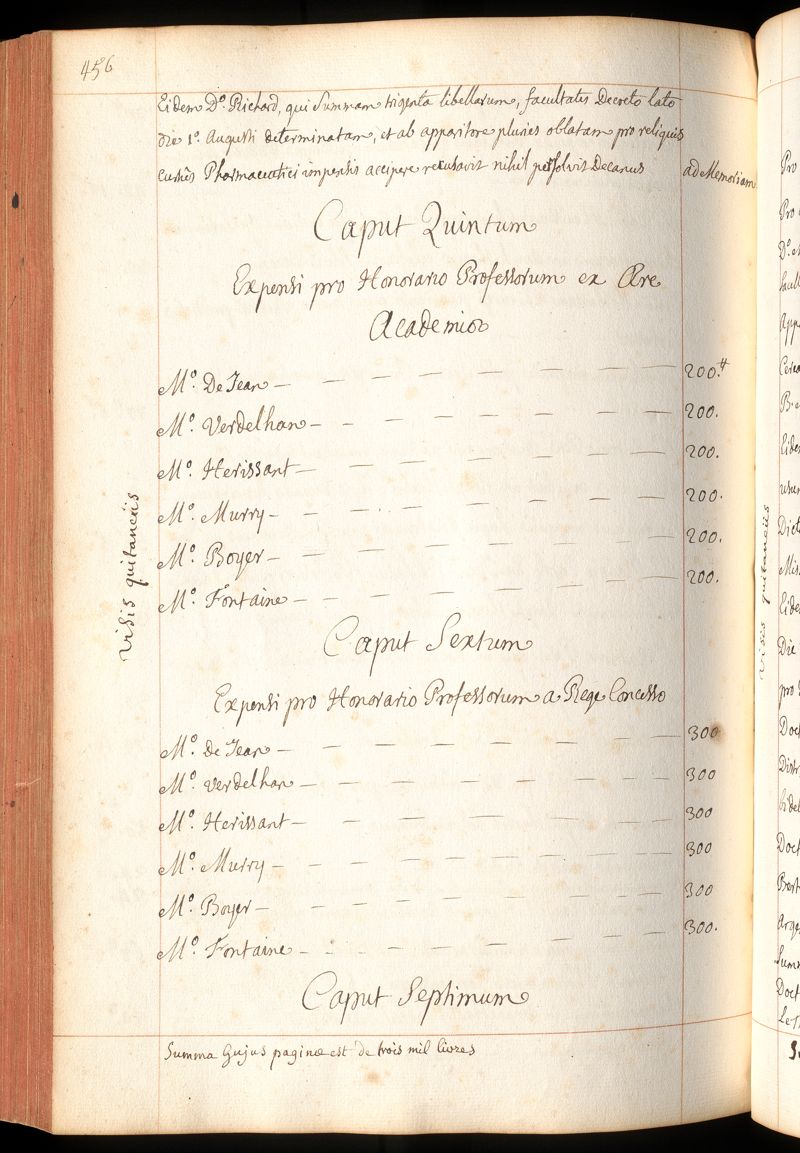 456
Eidem D.º Richard, qui Summam triginta libellarum, facultatis Decreto lato
die 1.º Augusti determinatam, et ab apparitore pluries oblatam pro reliquis
cursûs Pharmaceutici impensis accipere recusavit nihil persolvit Decanus ad Memoriam
Caput Quintum
Expensi pro Honorario Professorum ex Ære
Academico
M.º De Jean — 200.ᵗᵗ
M.º Verdelhan — 200.
M.º Herissant — 200.
M.º Murry — 200.
M.º Boyer — 200.
M.º Fontaine — 200.
Visis quitanciis
Caput Sextum
Expensi pro Honorario Professorum a Rege Concesso
M.º de Jean — 300
M.º Verdelhan — 300
M.º Herissant — 300
M.º Murry — 300
M.º Boyer — 300
M.º Fontaine — 300.
Caput Septimum
Summa hujus paginæ est de trois mil livres
Pro
Pro
D.º et
Visis quitanciis